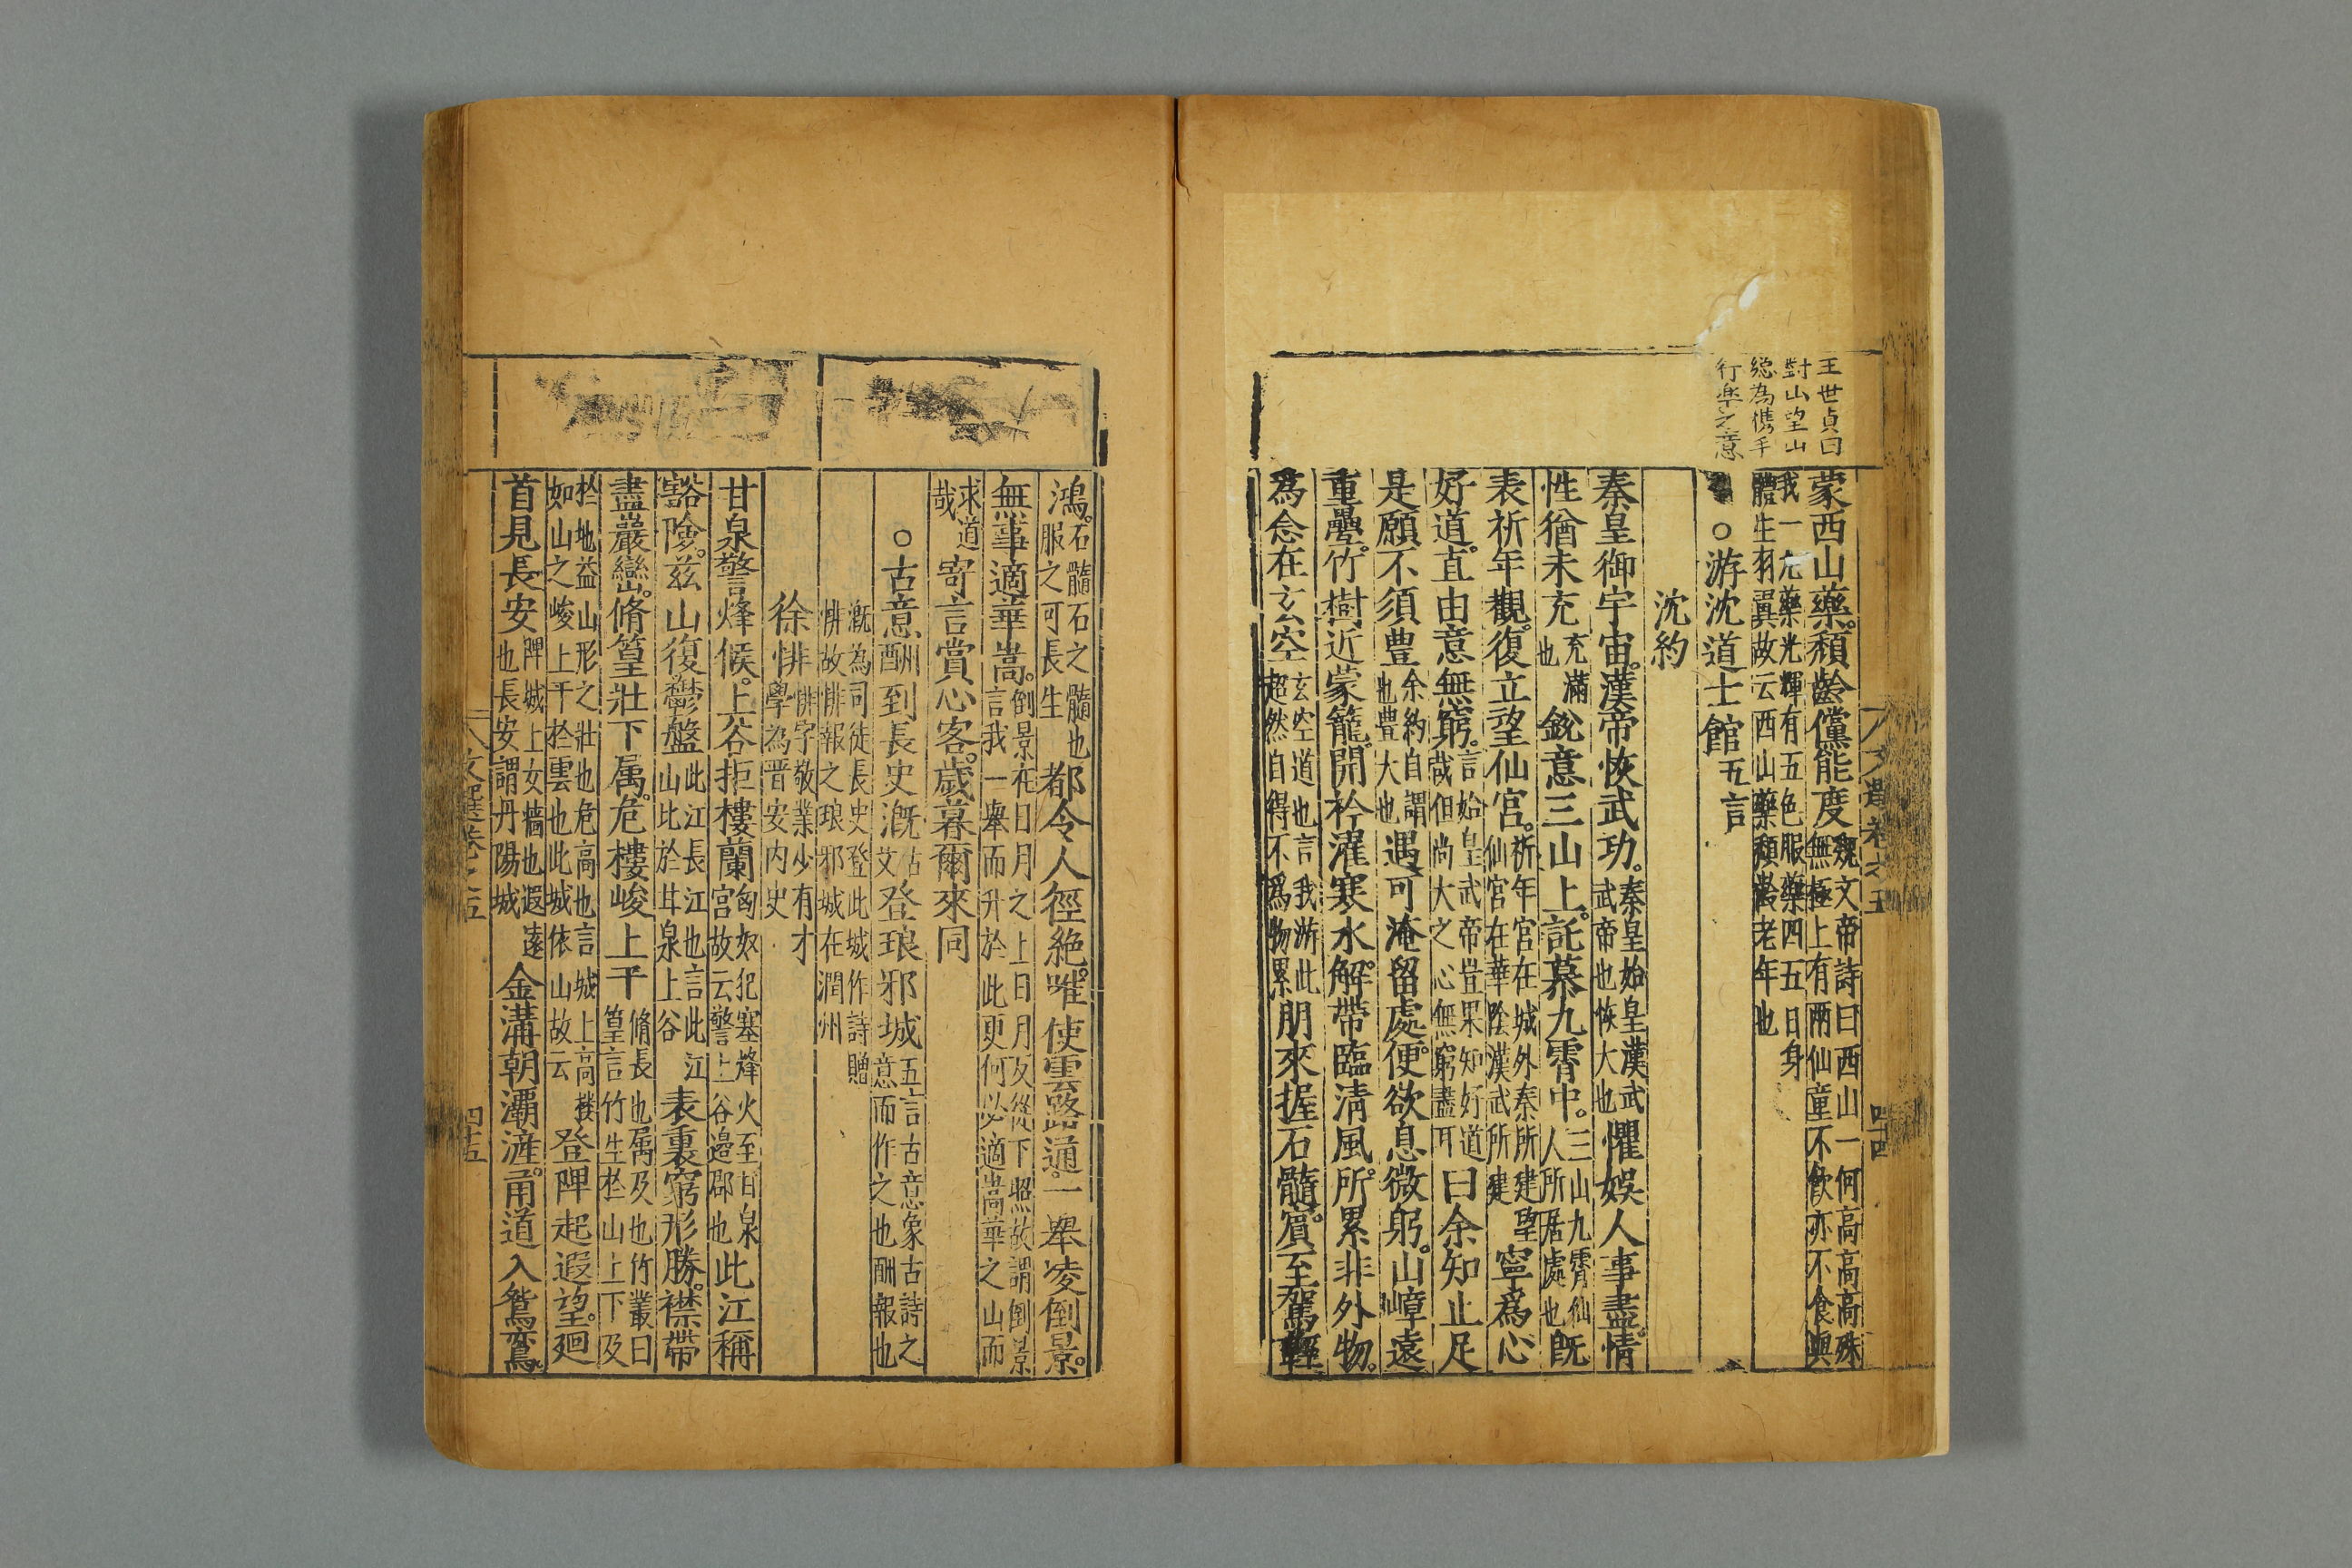 王世貞曰
對山望山
總為携手
行樂之意
蒙西山藥。頹齡儻能度魏文帝詩曰西山一何高高高殊無極上有兩仙童不飲亦不食與
我一丸藥光輝有五色服藥四五日身體生羽翼故云西山藥頹齡老年也
○游沈道士館五言
沈約
秦皇御宇宙。漢帝恢武功。秦皇始皇漢武武帝也恢大也懼娛人事盡。情
性猶未充充滿也銳意三山上。託慕九霄中。三山九霄仙人所居處也既
表祈年觀。復立望仙宮。祈年宮在城外秦所建望仙宮在華陰漢武所建寧為心
好道。直由意無窮。言始皇武帝豈果知好道哉但尚大之心無窮盡耳曰余知止足
是願不須豐余約自謂也豊大也遇可淹留處。便欲息微躬。山嶂遠
重疊。竹樹近蒙籠。開衿濯寒水。解帶臨清風。所累非外物。
為念在玄空玄空道也言我游此超然自得不為物累朋來握石髓。賓至駕輕
鴻。石髓石之髓也服之可長生都令人徑絕。唯使雲路通。一舉凌倒景。
無事適華嵩。倒景在日月之上日月反從下照故謂倒景言我一舉而升於此更何必適嵩華之山而
求道哉寄言賞心客。歲暮爾來同
○古意酬到長史溉登琅邪城五言古意象古詩之意而作之也酬報也
溉為司徒長史登此城作詩贈悱故悱報之琅邪城在潤州
徐悱悱字敬業少有才學為晋安内史
甘泉警烽候。上谷拒樓蘭匈奴犯塞烽火至甘泉宮故云警上谷邉郡也此江稱
豁險。兹山復鬱盤此江長江也言此江山比於甘泉上谷表裏窮形勝。襟帶
盡巖巒。脩篁壯下属。危樓峻上干脩長也属及也竹叢曰篁言竹生於山上下及
於地益山形之壯也危高也言城上高樓如山之峻上干於雲也此城依山故云登陴起遐望。廻
首見長安陴城上女墻也遐遠也長安謂丹陽城金溝朝灞滻。甬道入鴛鸞。
文選卷之五
四十五